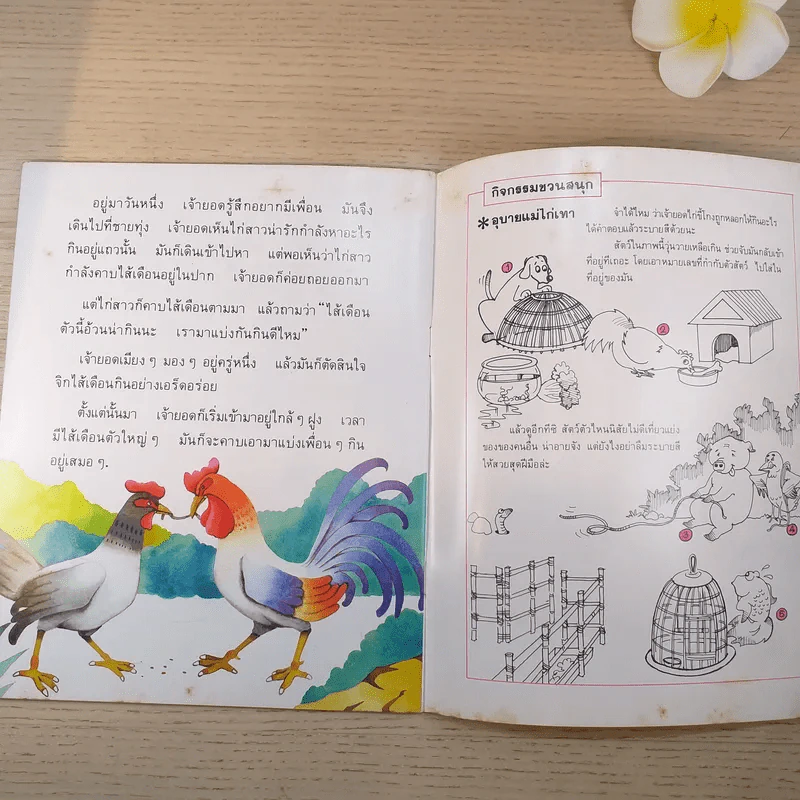 อยู่มาวันหนึ่ง เจ้ายอดรู้สึกอยากมีเพื่อน มันจึง
เดินไปที่ชายทุ่ง เจ้ายอดเห็นไก่สาวน่ารักกำลังหาอะไร
กินอยู่แถวนั้น มันก็เดินเข้าไปหา แต่พอเห็นว่าไก่สาว
กำลังคาบไส้เดือนอยู่ในปาก เจ้ายอดก็ค่อยถอยออกมา
แต่ไก่สาวก็คาบไส้เดือนตามมา แล้วถามว่า “ไส้เดือน
ตัวนี้อ้วนน่ากินนะ เรามาแบ่งกันกินดีไหม”
เจ้ายอดเมียง ๆ มอง ๆ อยู่ครู่หนึ่ง แล้วมันก็ตัดสินใจ
จิกไส้เดือนกินอย่างเอร็ดอร่อย
ตั้งแต่นั้นมา เจ้ายอดก็เริ่มเข้ามาอยู่ใกล้ ๆ ฝูง เวลา
มีไส้เดือนตัวใหญ่ ๆ มันก็จะคาบเอามาแบ่งเพื่อน ๆ กิน
อยู่เสมอ ๆ.
กิจกรรมชวนสนุก
*อุบายแม่ไก่เทา
จำได้ไหม ว่าเจ้ายอดไก่ขี้โกงถูกหลอกให้กินอะไร
ได้คำตอบแล้วระบายสีด้วยนะ
สัตว์ในภาพนี้วุ่นวายเหลือเกิน ช่วยจับมันกลับเข้า
ที่อยู่ทีเถอะ โดยเอาหมายเลขที่กำกับตัวสัตว์ ไปใส่ใน
ที่อยู่ของมัน
1
2
แล้วดูอีกทีซิ สัตว์ตัวไหนนิสัยไม่ดีเที่ยวแย่ง
ของของคนอื่น น่าอายจัง แต่ยังไงอย่าลืมระบายสี
ให้สวยสุดฝีมือล่ะ
3
4
5